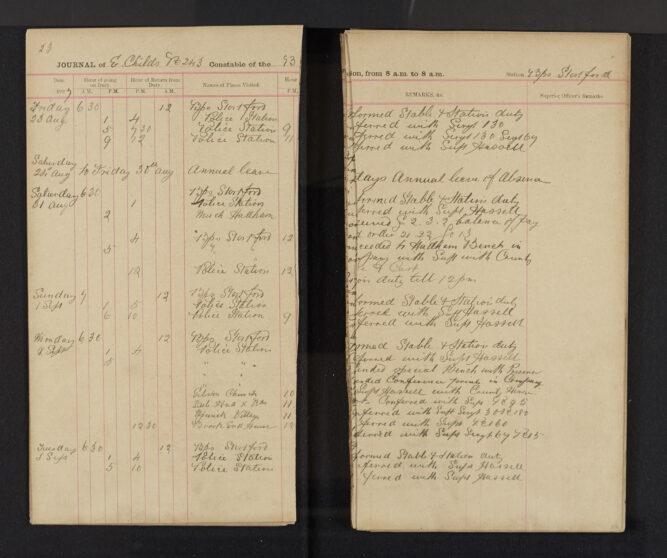 23
JOURNAL of E. Childs PC 243 Constable of the
Date. Hour of going on Duty. Hour of Return from Duty. Names of Places Visited. Hour
A.M. P.M. P.M. A.M. P.M.
Friday 6 30 12 B/ps Stortford
23 Aug 1 4 Police Station
5 7 30 Police Station 9
9 12 Police Station 11
Saturday
24 Aug to Friday 30th Aug Annual leave
Saturday 6 30 B/ps Stortford
31 Aug 1 Police Station
2 Much Hadham
4 B/ps Stortford 12
5 "
12 Police Station 12
Sunday 7 12 B/ps Stortford
1 Sept 1 5 Police Station
6 10 Police Station 9
Monday 6 30 12 B/ps Stortford
2 Sept 1 4 Police Station
5 " "
" "
" "
Church 10
11
11
12 30 Brook End House 12
Tuesday 6 30 12 B/ps Stortford
3 Sept 1 4 Police Station
5 10 Police Station
ision, from 8 a.m. to 8 a.m. Station B/ps Stortford
REMARKS, &c. Superior Officer's Remarks.
formed Stable & Station duty
ferred with Sergt 130
ferred with Sergt 130 Sergt 69
ferred with Supt Hassell
days Annual leave of Absence
formed Stable & Station duty
ferred with Supt Hassell
£2. 3. 2. balance of pay
ceeded to Hadham Bench in
pany with Supt with County
Cart
duty till 12 pm
formed Stable & Station duty
ferred with Supt Hassell
ferred with Supt Hassell
formed Stable & Station duty
ferred with Supt Hassell
ended special Bench with Prisoner
ended Conference points in Company
Supt Hassell with County Horse
Conferred with Supt PC 95
ferred with Supt Sergt
ferred with Supt PC 160
ferred with Supt Sergt 69 PC 15
formed Stable & Station duty
ferred with Supt Hassell
ferred with Supt Hassell